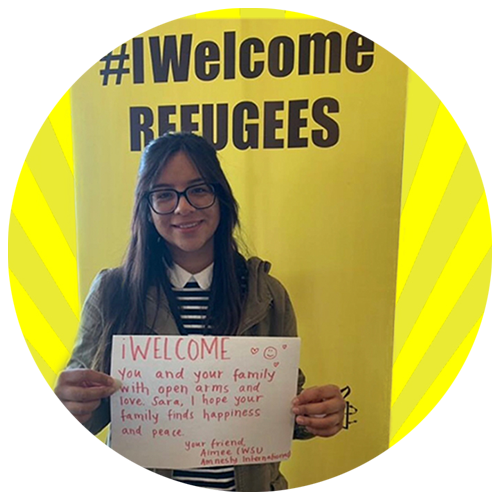 #IWelcome
REFUGEES
iWELCOME
You and your family
with open arms and
love. Sara, I hope your
family finds happiness
and peace.
your friend,
Aimee (WSU
Amnesty International)